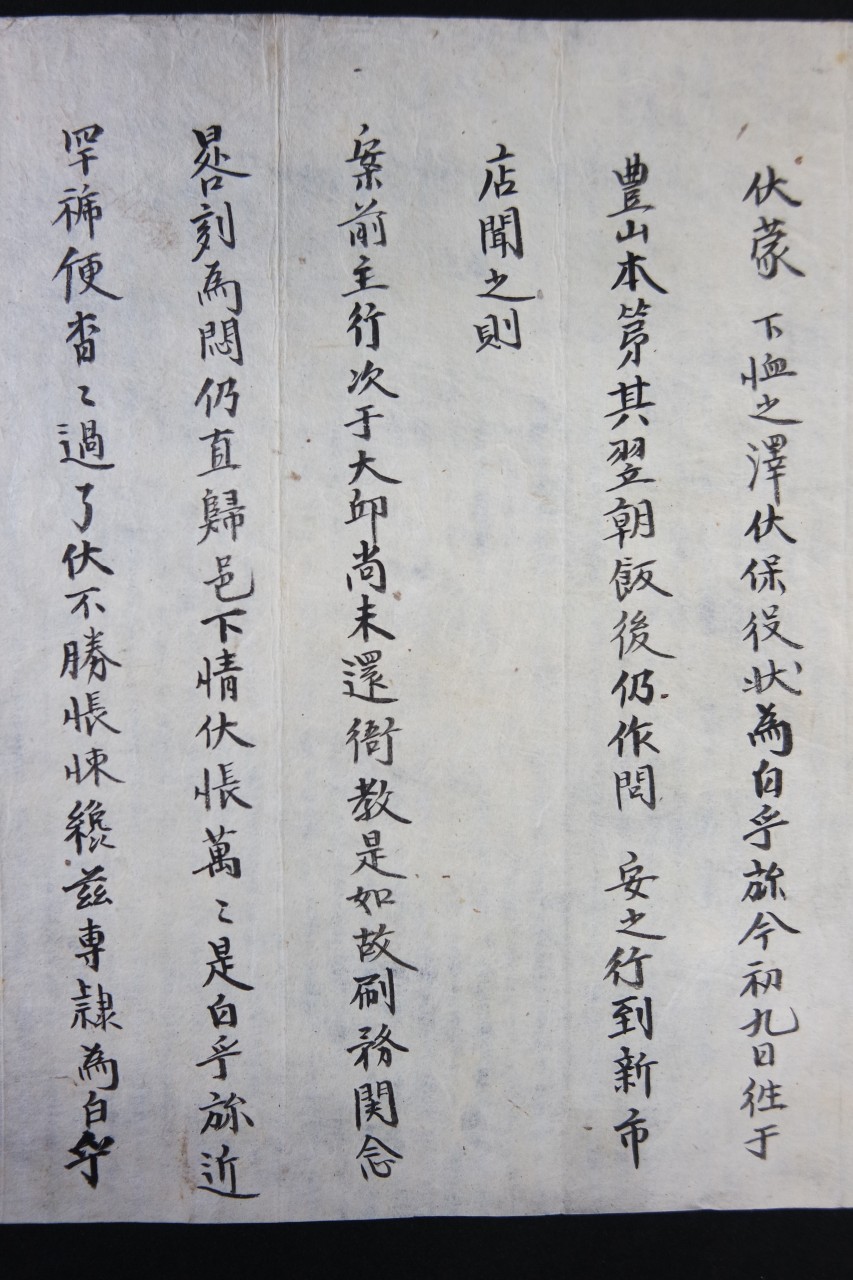 伏蒙 下恤之澤伏保役狀爲白乎旀今初九日徃于
豊山本第其翌朝飯後仍作問 安之行到新市
店聞之則
案前主行次于大邱尚未還衙教是如故刷務関念
晷刻爲悶仍直歸邑下情伏悵萬〻是白乎旀近
罕褫便杳〻過了伏不勝悵悚纔玆専隷爲白乎